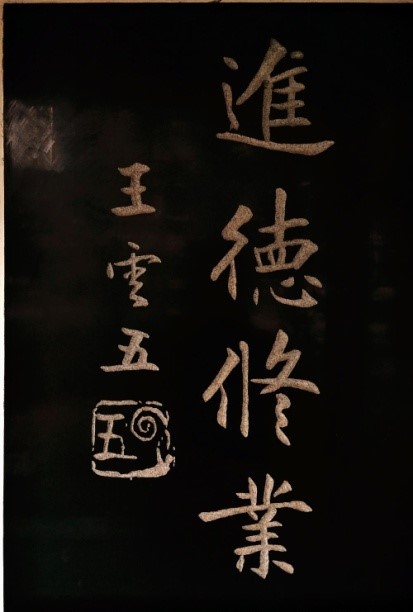 進德修業
王雲五
五